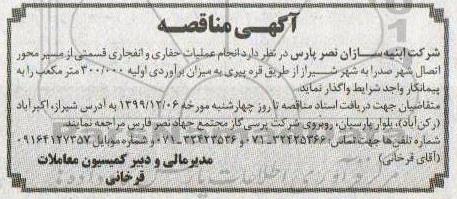 آگهـی مناقصـه
شرکت ابنیه‌ســازان نصر پارس در نظر دارد انجام عملیات حفاری و انفجاری قسمتی از مسیر محور
اتصال شهر صدرا به شهر شیراز از طریق قره پیری به میزان برآوردی اولیه ۳۰۰/۰۰۰ متر مکعب را به
پیمانکار واجد شرایط واگذار نماید.
متقاضیان جهت دریافت اسناد مناقصه تا روز چهارشنبه مورخه ۱۳۹۹/۱۲/۰۶ به آدرس شیراز، اکبرآباد
(رکن‌آباد)، بلوار پارسیان، روبروی شرکت پرسی گاز مجتمع جهاد نصر فارس مراجعه نمایند.
شماره تلفن‌ها جهت تماس: ۳۲۴۲۵۳۶۶-۰۷۱ و ۳۲۴۲۳۵۳۶-۰۷۱ و شماره موبایل ۰۹۱۶۴۱۲۷۳۵۷
(آقای فرخانی)
مدیر مالی و دبیر کمیسیون معاملات
فرخانی